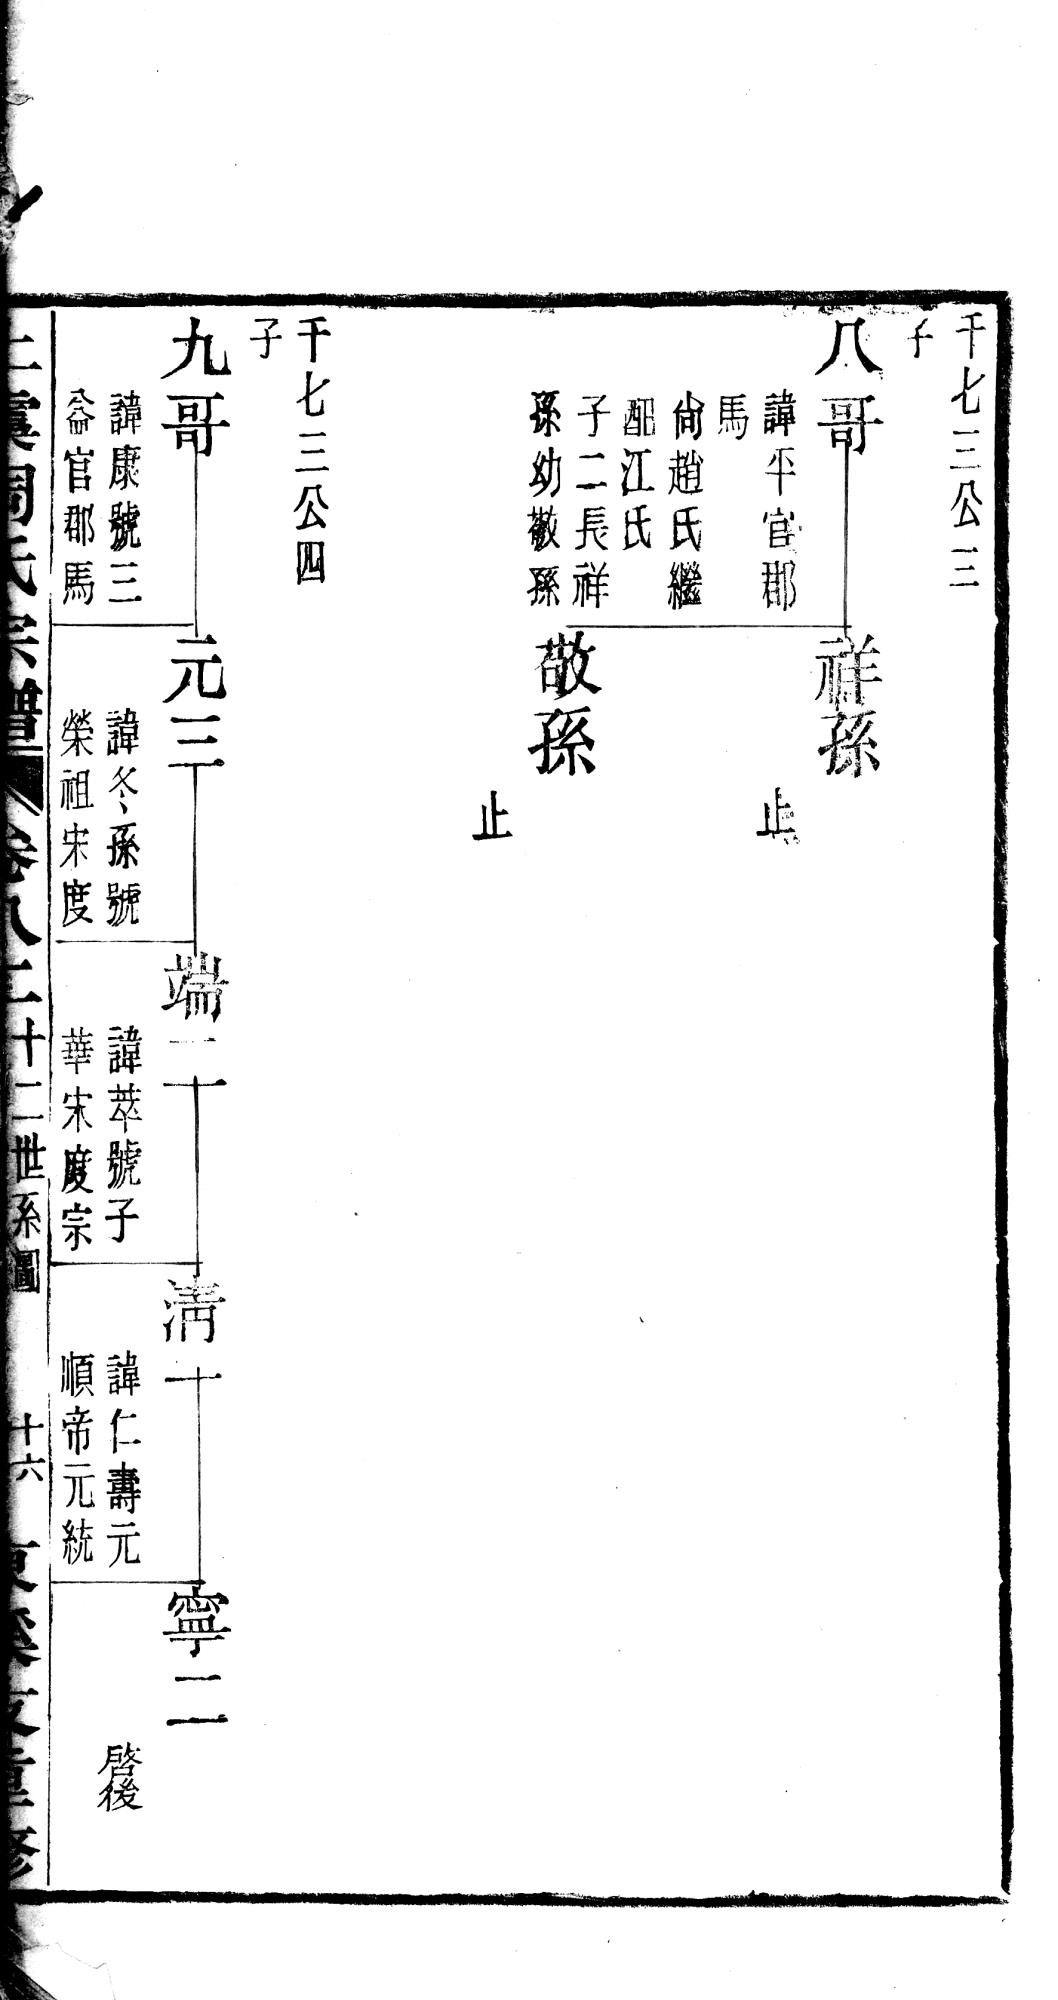 千七三公三
子
八哥
諱平官郡
馬
尙趙氏繼
配江氏
子二長祥
孫幼敬孫
祥孫
止
敬孫
止
千七三公四
子
九哥
諱康號三
益官郡馬
元三
諱冬孫號
榮祖宋度
端二
諱萃號子
華宋度宗
淸十
諱仁壽元
順帝元統
寧二
啓後
上虞周氏宗譜
卷八二十二世系圖
十六
重修